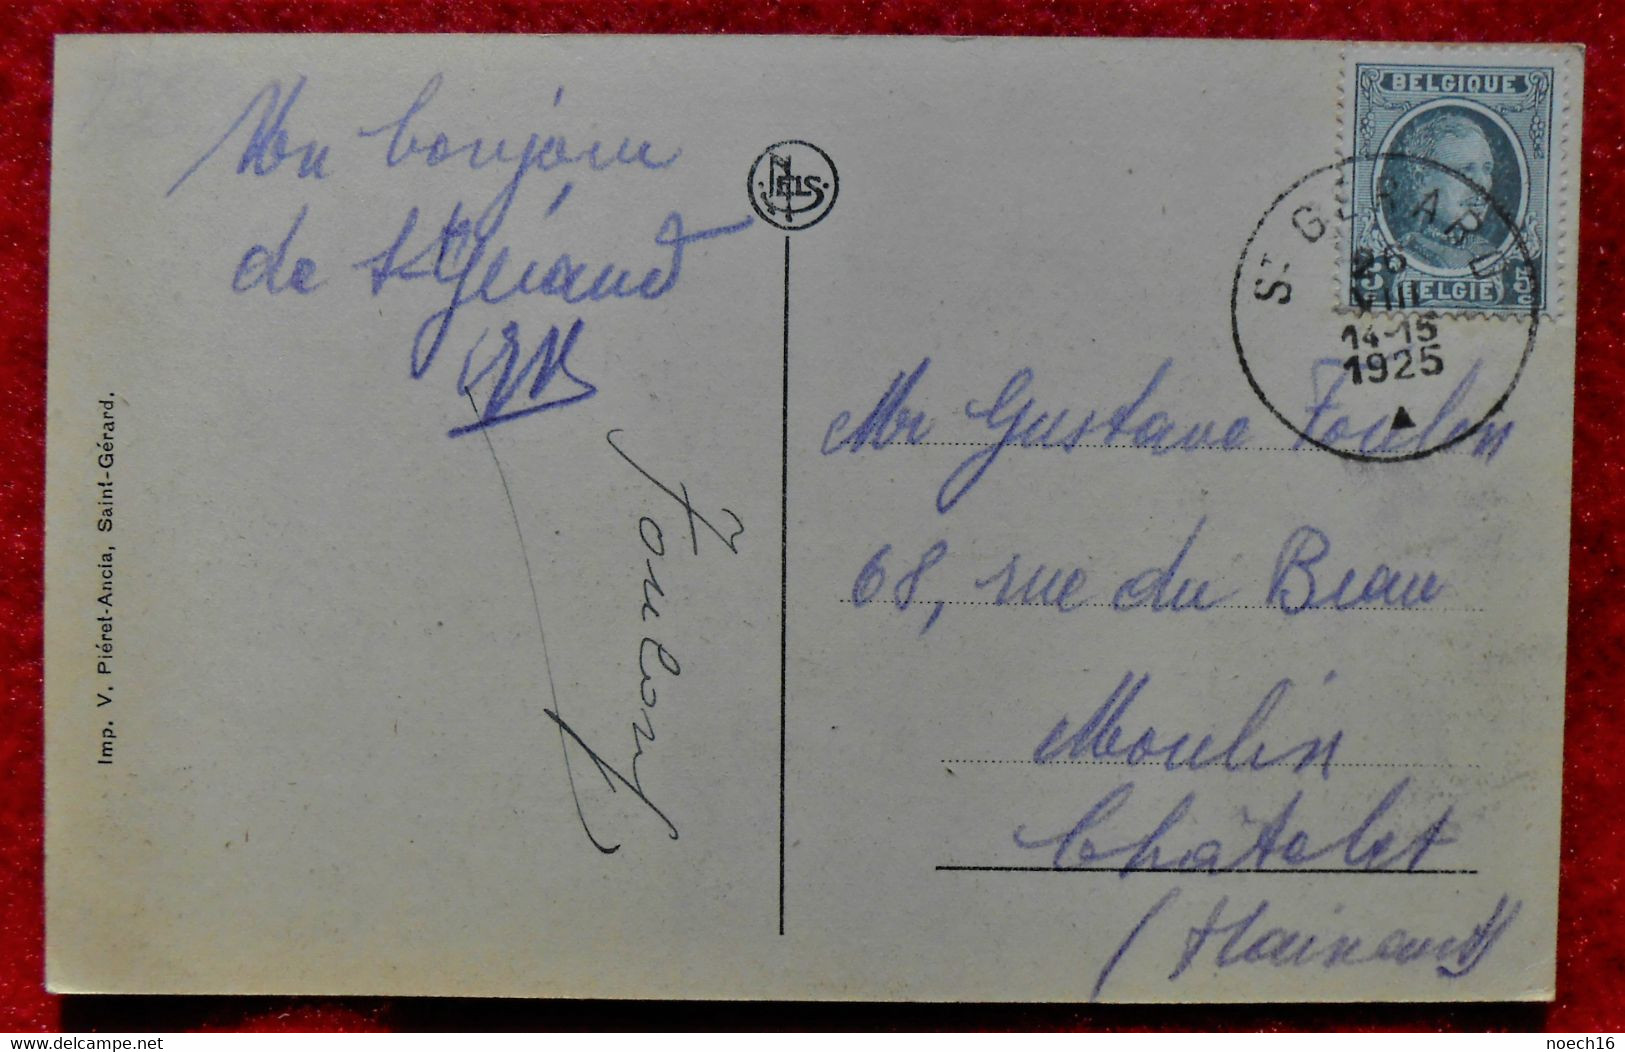 Un bonjour
de St Gérard
Foulon
Imp. V. Piéret-Ancia, Saint-Gérard.
NELS
BELGIQUE
5c 5c
BELGIË
ST GERARD
26
VIII
14-15
1925
Mr Gustave Foulon
68, rue du Beau
Moulin
Châtelet
(Hainaut)
noech16